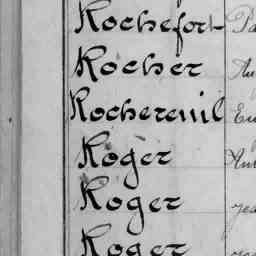 Rochefort
Rocher
Rochereuil
Roger
Roger
Roger